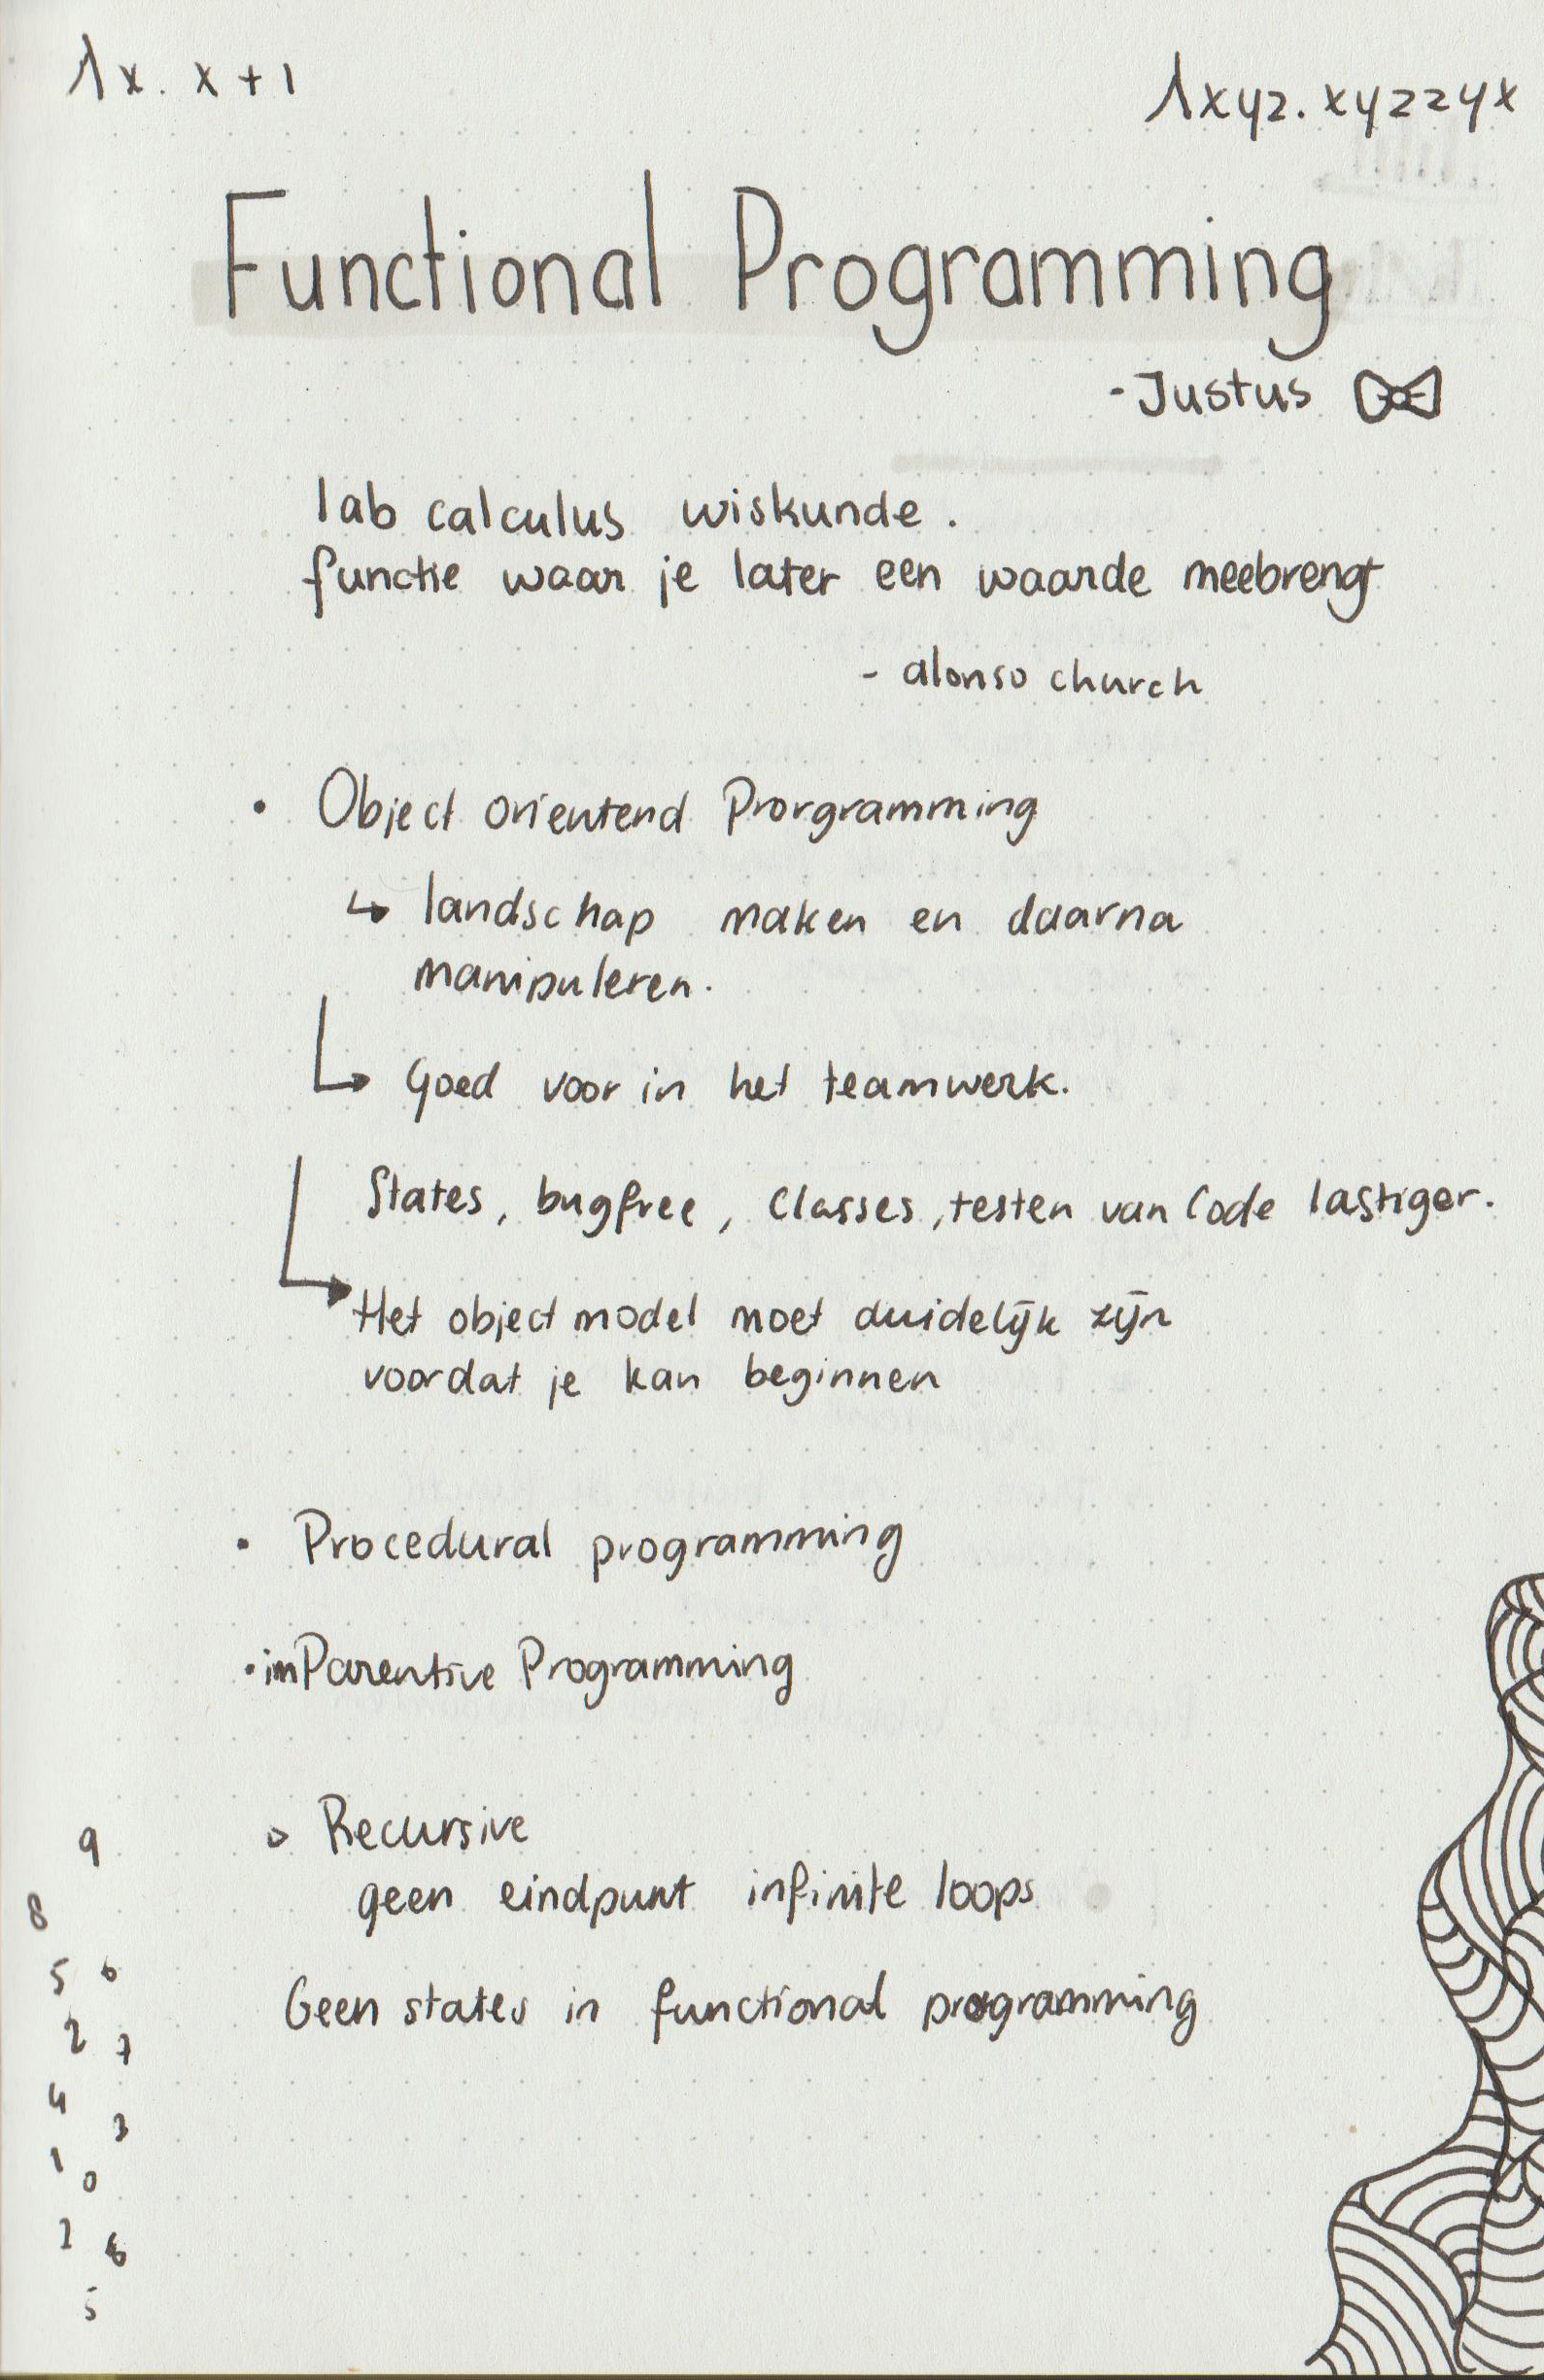 λx. x + 1
λxyz. xyzzyx
Functional Programming
- Justus
lab calculus wiskunde.
functie waar je later een waarde meebrengt
- alonso church
• Object orientend Prorgramming
↳ landschap maken en daarna
manipuleren.
↳ Goed voor in het teamwerk.
States, bugfree, Classes, testen van Code lastiger.
↳ Het object model moet duidelijk zijn
voordat je kan beginnen
• Procedural programming
• imParentive Programming
> Recursive
geen eindpunt infinite loops
Geen states in functional programming
9
8
5 6
2 7
4
3
1
0
2 8
5